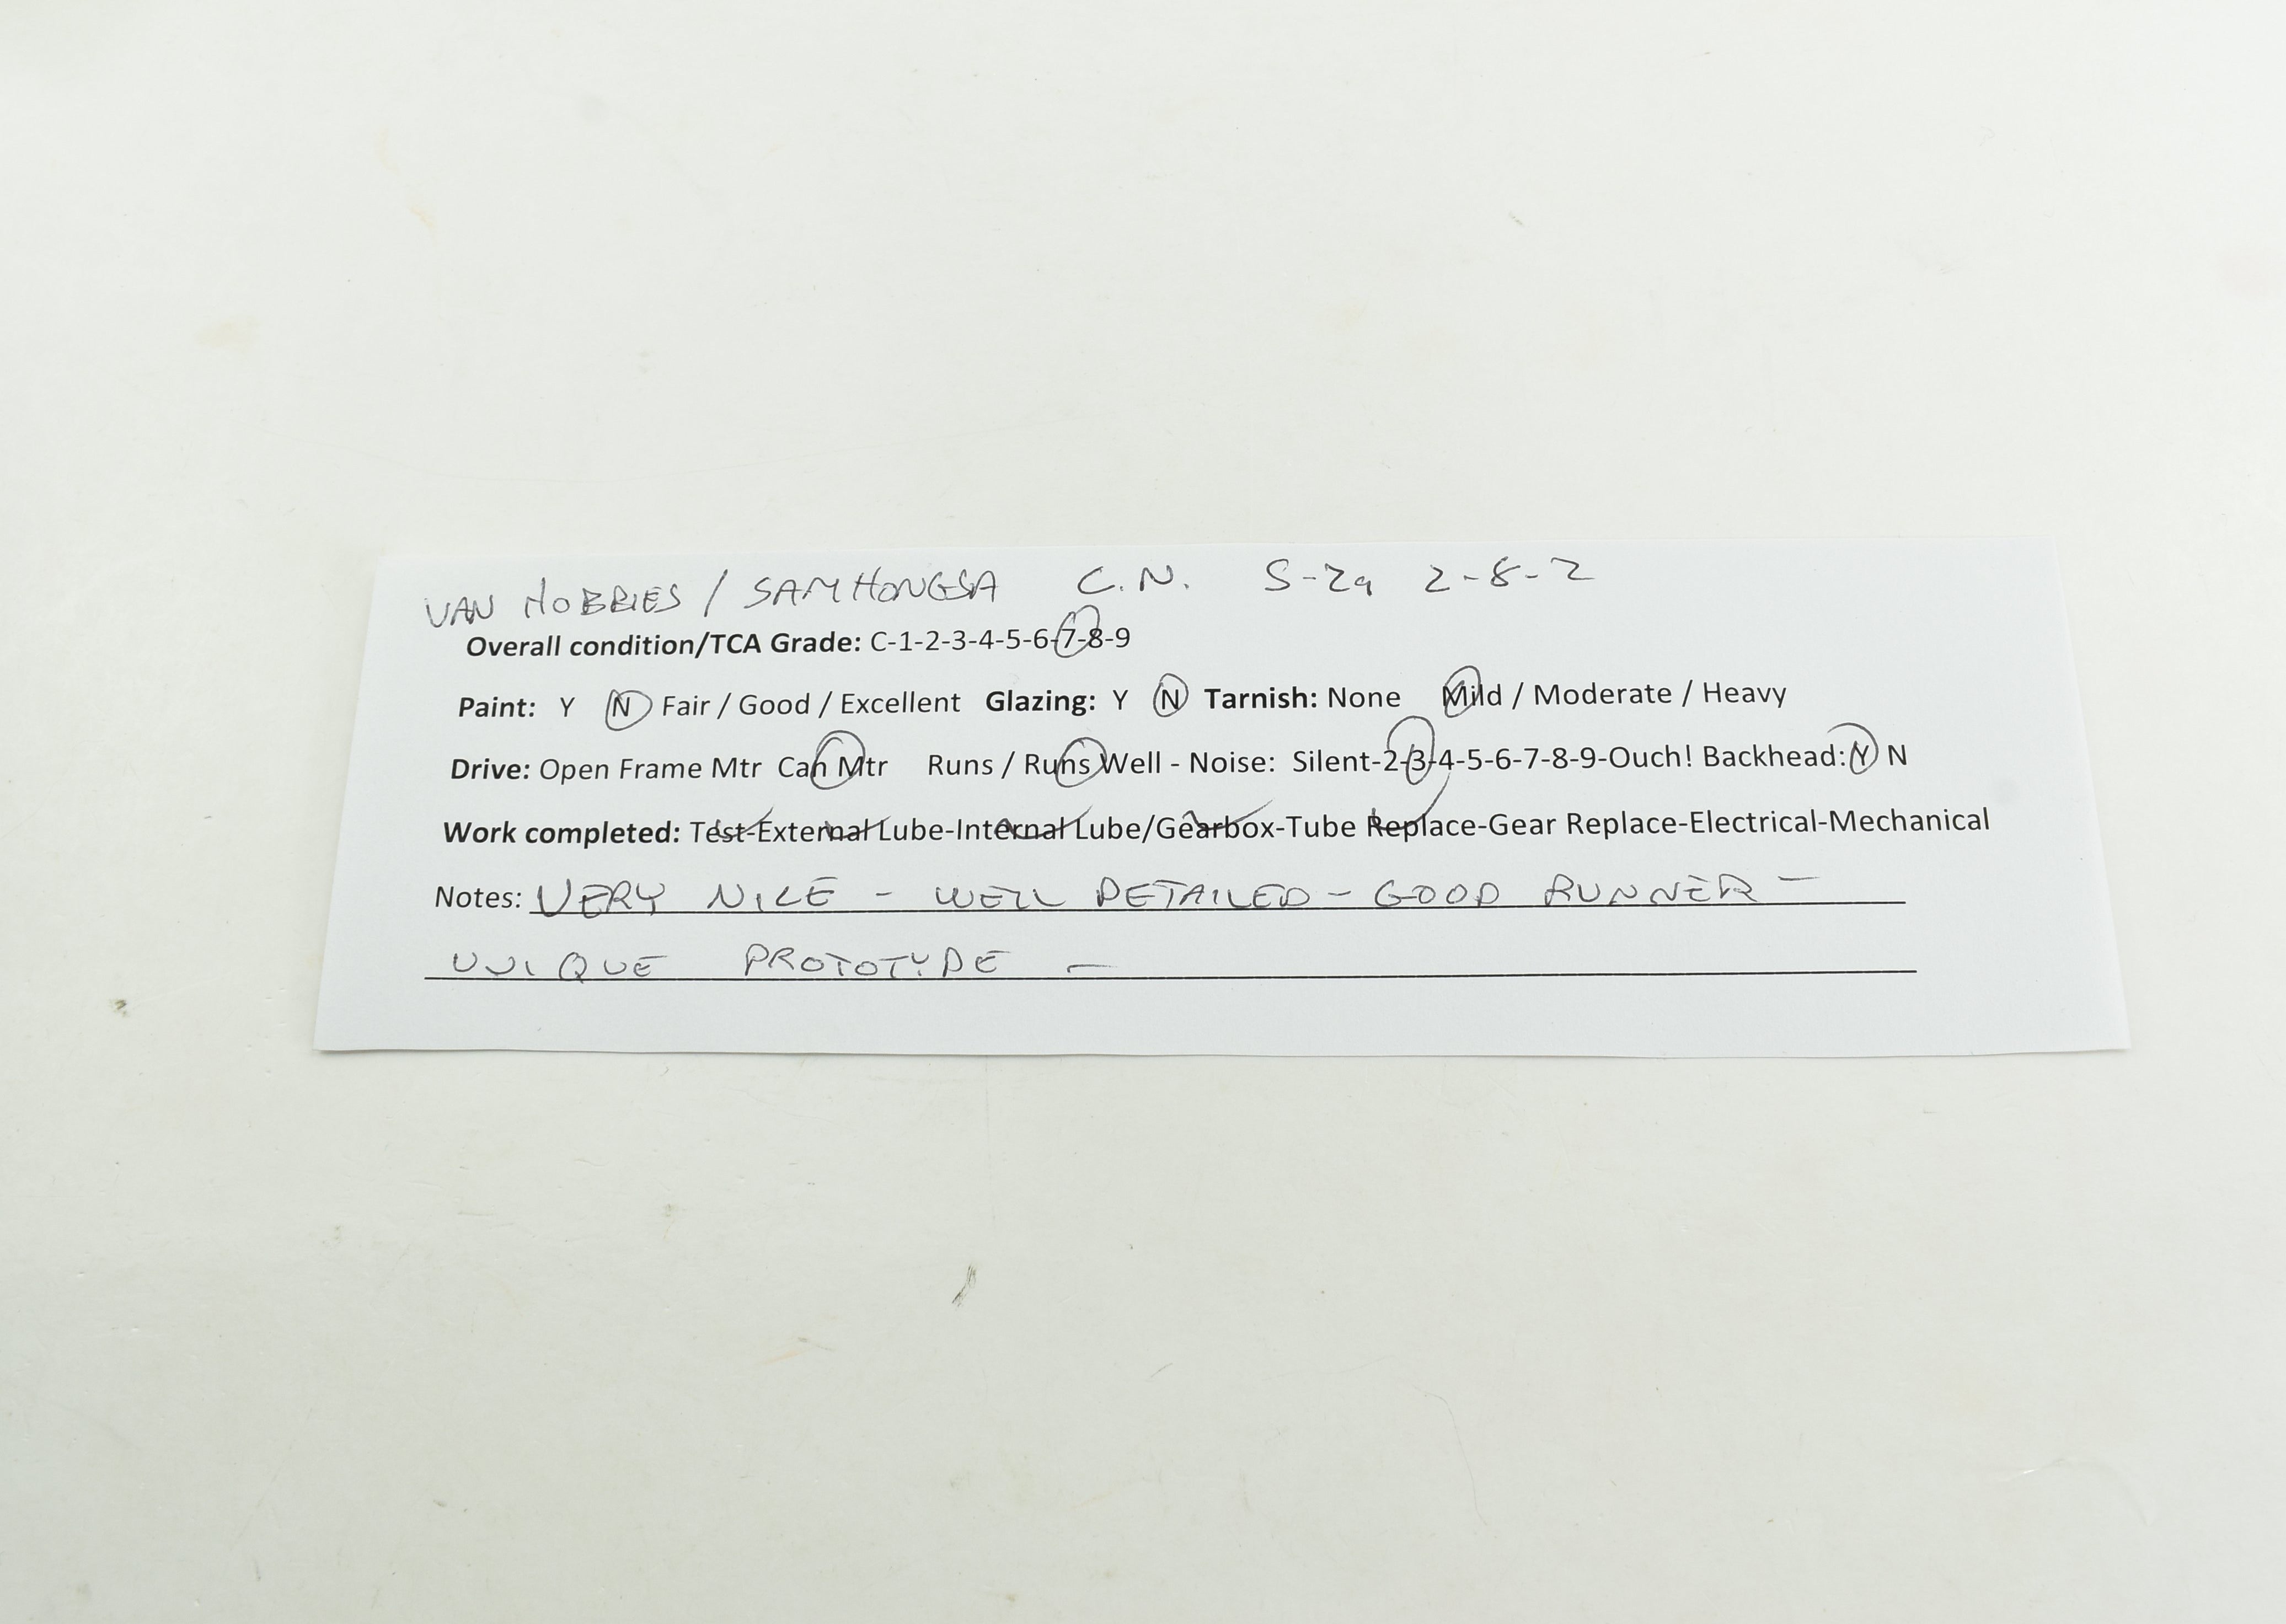 VAN HOBBIES / SAMHONGSA C.N. S-2a 2-8-2
Overall condition/TCA Grade: C-1-2-3-4-5-6-7-8-9
Paint: Y N Fair / Good / Excellent Glazing: Y N Tarnish: None Mild / Moderate / Heavy
Drive: Open Frame Mtr Can Mtr Runs / Runs Well - Noise: Silent-2-3-4-5-6-7-8-9-Ouch! Backhead: Y N
Work completed: Test-External Lube-Internal Lube/Gearbox-Tube Replace-Gear Replace-Electrical-Mechanical
Notes: VERY NICE - WELL DETAILED - GOOD RUNNER -
UNIQUE PROTOTYPE -